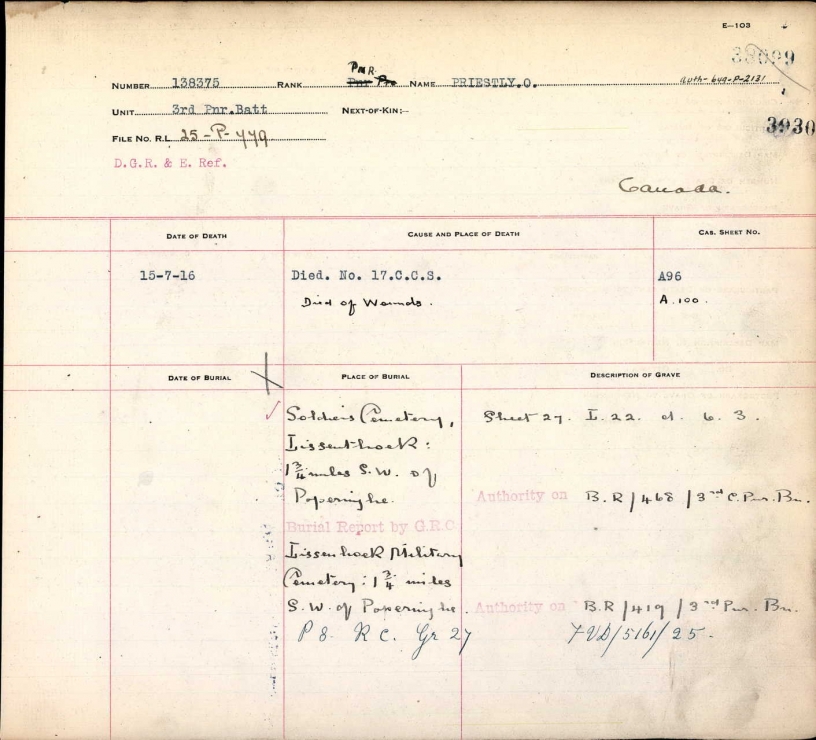 E—103
PNR.
NUMBER 138375 RANK Pnr Pte NAME PRIESTLY.O. Auth- 649-P-2131
UNIT 3rd Pnr.Batt NEXT-OF-KIN:—
3930
FILE NO. R.L. 25-P-449
D.G.R. & E. Ref.
Canada.
DATE OF DEATH CAUSE AND PLACE OF DEATH CAS. SHEET NO.
15-7-16 Died. No. 17.C.C.S. A96
Died of Wounds. A.100.
DATE OF BURIAL PLACE OF BURIAL DESCRIPTION OF GRAVE
Soldiers Cemetery, Sheet 27. L. 22. d. 6. 3.
Lissenthoek:
1 3/4 miles S.W. of
Poperinghe. Authority on B.R/468/3rd C.Pnr.Bn.
Burial Report by G.R.C
Lissenhoek Military
Cemetery: 1 3/4 miles
S.W. of Poperinghe. Authority on B.R/419/3rd Pnr. Bn.
P 8. R C. Gr 27 7VD/5161/25.